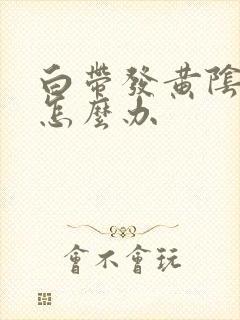 白帶發黃陰
怎麼办
會不會玩